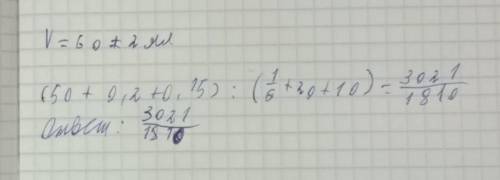 V = 50 ± 2 мл
(50 + 0,2 + 0,15) : (1/6 + 20 + 10) = 3021/1810
Ответ: 3021/1810